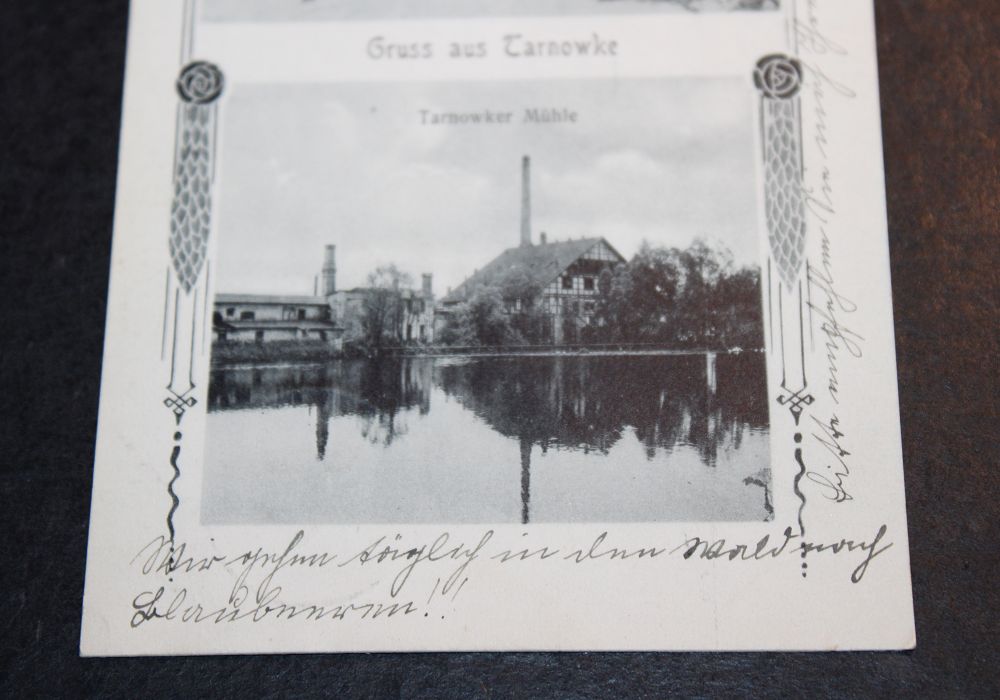 Gruss aus Tarnowke
Tarnowker Mühle
Wir gehen täglich in den Wald nach
Blaubeeren!!
Bitte